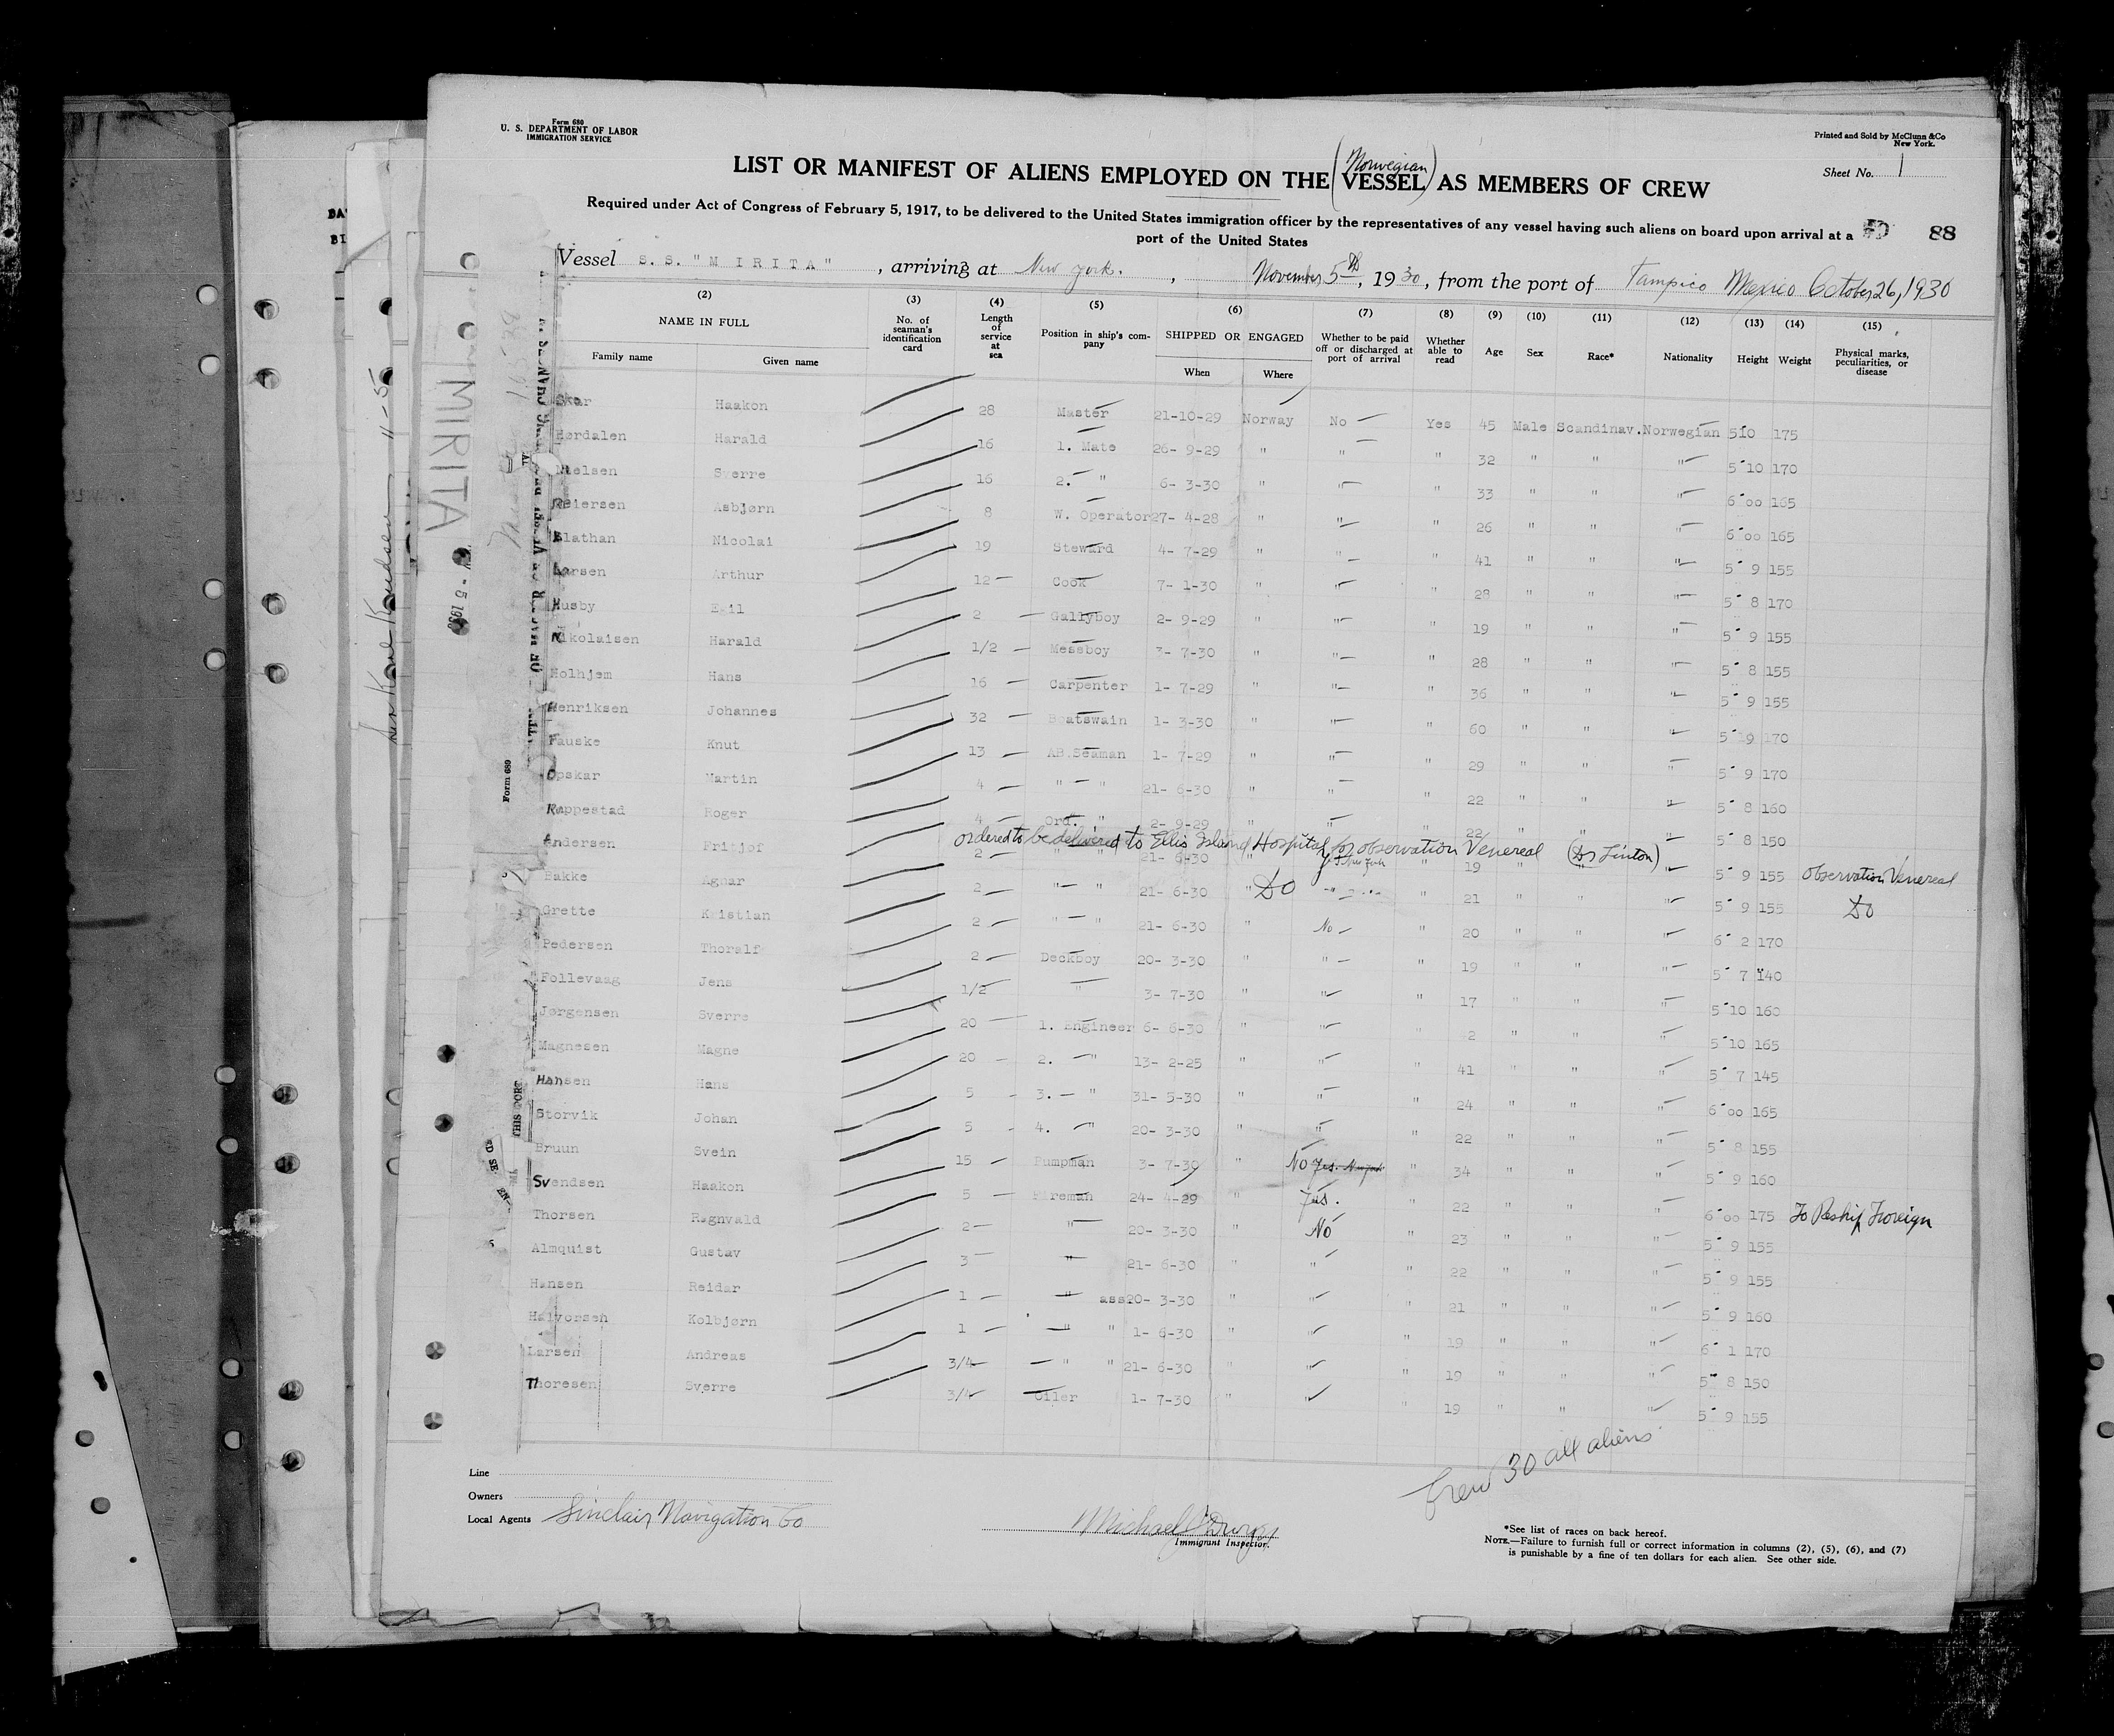 Form 680
U. S. DEPARTMENT OF LABOR
IMMIGRATION SERVICE
Printed and Sold by McClunn & Co
New York.
Sheet No. 1
LIST OR MANIFEST OF ALIENS EMPLOYED ON THE (Norwegian) VESSEL AS MEMBERS OF CREW
Required under Act of Congress of February 5, 1917, to be delivered to the United States immigration officer by the representatives of any vessel having such aliens on board upon arrival at a
port of the United States
88
Vessel S.S. "MIRITA", arriving at New York, November 5th, 1930, from the port of Tampico Mexico October 26, 1930
(2) (3) (4) (5) (6) (7) (8) (9) (10) (11) (12) (13) (14) (15)
NAME IN FULL Family name Given name No. of seaman's identification card Length of service at sea Position in ship's company SHIPPED OR ENGAGED When Where Whether to be paid off or discharged at port of arrival Whether able to read Age Sex Race* Nationality Height Weight Physical marks, peculiarities, or disease
Skar Haakon 28 Master 21-10-29 Norway No Yes 45 Male Scandinav. Norwegian 5 10 175
Hørdalen Harald 16 1. Mate 26- 9-29 " " " 32 " " " 5 10 170
Nielsen Sverre 16 2. " 6- 3-30 " " " 33 " " " 6 00 165
Reiersen Asbjørn 8 W. Operator 27- 4-28 " " " 26 " " " 6 00 165
Elathan Nicolai 19 Steward 4- 7-29 " " " 41 " " " 5 9 155
Larsen Arthur 12 Cook 7- 1-30 " " " 28 " " " 5 8 170
Husby Emil 2 Gallyboy 2- 9-29 " " " 19 " " " 5 9 155
Nikolaisen Harald 1/2 Messboy 3- 7-30 " " " 28 " " " 5 8 155
Holhjem Hans 16 Carpenter 1- 7-29 " " " 36 " " " 5 9 155
Henriksen Johannes 32 Boatswain 1- 3-30 " " " 60 " " " 5 9 170
Fauske Knut 13 AB.Seaman 1- 7-29 " " " 29 " " " 5 9 170
Opskar Martin 4 " " 21- 6-30 " " " 22 " " " 5 8 160
Rappestad Roger 4 Ord. " 2- 9-29 " " " 22 " " " 5 8 150
ordered to be delivered to Ellis Island Hospital for observation Venereal (Dr Linton)
Andersen Fritjof 2 " " 21- 6-30 " " 19 " " " 5 9 155 Observation Venereal
Bakke Agnar 2 " " 21- 6-30 " Do " " 21 " " " 5 9 155 Do
Grette Kristian 2 " " 21- 6-30 " No " 20 " " " 6 2 170
Pedersen Thoralf 2 Deckboy 20- 3-30 " " " 19 " " " 5 7 140
Follevaag Jens 1/2 " 3- 7-30 " " " 17 " " " 5 10 160
Jørgensen Sverre 20 1. Engineer 6- 6-30 " " " 2 " " " 5 10 165
Magnesen Magne 20 2. " 13- 2-25 " " " 41 " " " 5 7 145
Hansen Hans 5 3. " 31- 5-30 " " " 24 " " " 6 00 165
Storvik Johan 5 4. " 20- 3-30 " " " 22 " " " 5 8 155
Bruun Svein 15 Pumpman 3- 7-30 " No Yes. New York " 34 " " " 5 9 160
Svendsen Haakon 5 Fireman 24- 4-29 " Yes. " 22 " " " 6 00 175 To Reship Foreign
Thorsen Ragnvald 2 " 20- 3-30 " No " 23 " " " 5 9 155
Almquist Gustav 3 " 21- 6-30 " " " 22 " " " 5 9 155
Hansen Reidar 1 " ass 20- 3-30 " " " 21 " " " 5 9 160
Halvorsen Kolbjørn 1 " " 1- 6-30 " " " 19 " " " 6 1 170
Larsen Andreas 3/4 " " 21- 6-30 " " " 19 " " " 5 8 150
Thoresen Sverre 3/4 Oiler 1- 7-30 " " " 19 " " " 5 9 155
Crew 30 all aliens
Line
Owners
Local Agents Sinclair Navigation Co
Michael
Immigrant Inspector.
*See list of races on back hereof.
NOTE.—Failure to furnish full or correct information in columns (2), (5), (6), and (7)
is punishable by a fine of ten dollars for each alien. See other side.
MIRITA
- 5 19
Form 689
THIS PORT
11-5